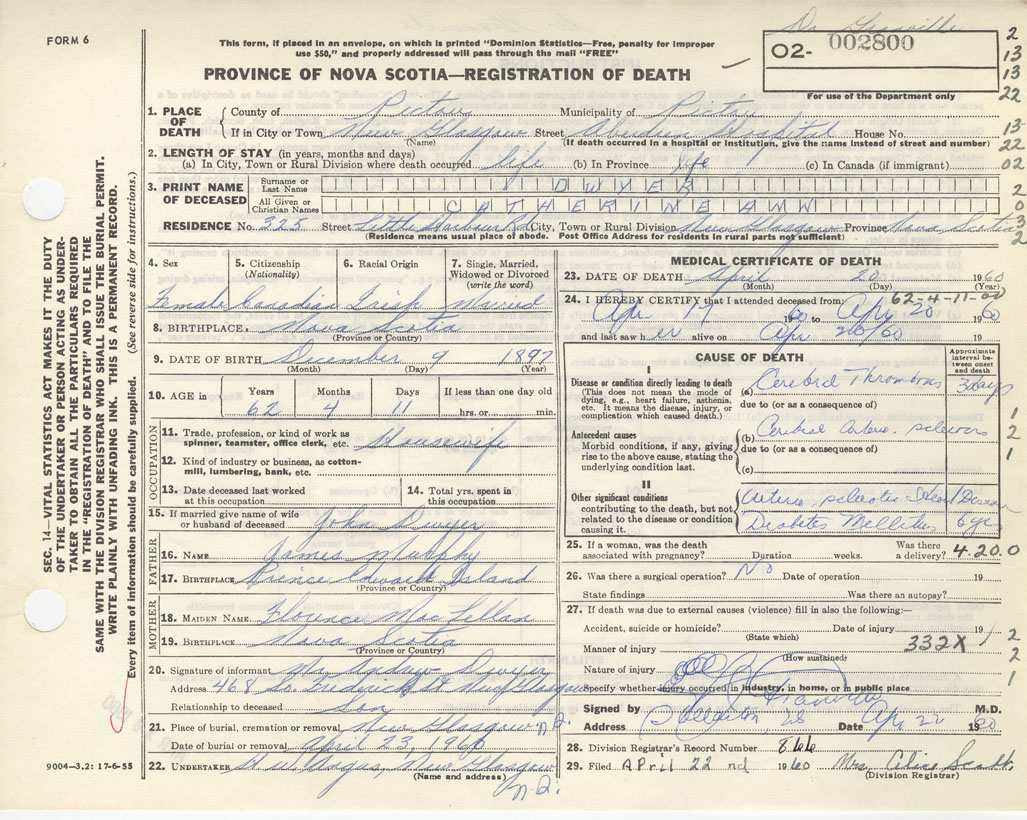 FORM 6
This form, if placed in an envelope, on which is printed "Dominion Statistics—Free, penalty for improper
use $50," and properly addressed will pass through the mail "FREE"
PROVINCE OF NOVA SCOTIA—REGISTRATION OF DEATH
Dr Granville
02- 002800
For use of the Department only
2
13
13
22
1. PLACE OF DEATH
County of Pictou Municipality of Pictou
If in City or Town New Glasgow Street Aberdeen Hospital House No.
(Name) (If death occurred in a hospital or institution, give the name instead of street and number)
13
22
2. LENGTH OF STAY (in years, months and days)
(a) In City, Town or Rural Division where death occurred life (b) In Province life (c) In Canada (if immigrant)
02
3. PRINT NAME OF DECEASED
Surname or Last Name DWYER
All Given or Christian Names CATHERINE ANN
2
0
3
2
RESIDENCE No. 325 Street Little Harbour Rd City, Town or Rural Division New Glasgow Province Nova Scotia
(Residence means usual place of abode. Post Office Address for residents in rural parts not sufficient)
4. Sex 5. Citizenship (Nationality) 6. Racial Origin 7. Single, Married, Widowed or Divorced (write the word)
Female Canadian Irish Married
8. BIRTHPLACE Nova Scotia
(Province or Country)
9. DATE OF BIRTH December 9 1897
(Month) (Day) (Year)
10. AGE in Years Months Days If less than one day old
62 4 11 hrs. or min.
OCCUPATION
11. Trade, profession, or kind of work as spinner, teamster, office clerk, etc. Housewife
12. Kind of industry or business, as cotton-mill, lumbering, bank, etc.
13. Date deceased last worked at this occupation
14. Total yrs. spent in this occupation
15. If married give name of wife or husband of deceased John Dwyer
FATHER
16. NAME James Murphy
17. BIRTHPLACE Prince Edward Island
(Province or Country)
MOTHER
18. MAIDEN NAME Florence MacLellan
19. BIRTHPLACE Nova Scotia
(Province or Country)
20. Signature of informant Mr. Andrew Dwyer
Address 468 So. Frederick St New Glasgow
Relationship to deceased Son
21. Place of burial, cremation or removal New Glasgow n.s.
Date of burial or removal April 23, 1960
22. UNDERTAKER H.W. Angus, New Glasgow
(Name and address) n.s.
MEDICAL CERTIFICATE OF DEATH
23. DATE OF DEATH April 20 1960
(Month) (Day) (Year)
62-4-11-00
24. I HEREBY CERTIFY that I attended deceased from
Apr 17 1960 to Apr 20 1960
and last saw her alive on Apr 20/60
CAUSE OF DEATH
Approximate interval between onset and death
I
Disease or condition directly leading to death
(This does not mean the mode of dying, e.g., heart failure, asthenia, etc. It means the disease, injury, or complication which caused death.)
(a) Cerebral Thrombosis 3 days
due to (or as a consequence of)
Antecedent causes
Morbid conditions, if any, giving rise to the above cause, stating the underlying condition last.
(b) Cerebral arterio-sclerosis
due to (or as a consequence of)
(c)
1
2
1
II
Other significant conditions
contributing to the death, but not related to the disease or condition causing it.
Arterio sclerotic Heart Disease
Diabetes Mellitus 6 yrs
25. If a woman, was the death associated with pregnancy? Duration weeks. Was there a delivery?
4.20.0
26. Was there a surgical operation? No Date of operation 19
State findings Was there an autopsy?
27. If death was due to external causes (violence) fill in also the following:—
Accident, suicide or homicide? Date of injury 19
(State which)
332X
Manner of injury
(How sustained)
2
2
1
Nature of injury
Specify whether injury occurred in industry, in home, or in public place
Signed by Granville M.D.
Address Stellarton NS Date Apr 22 1960
28. Division Registrar's Record Number 866
29. Filed April 22nd 1960 Mrs. Alice Scott
(Division Registrar)
SEC. 14—VITAL STATISTICS ACT MAKES IT THE DUTY
OF THE UNDERTAKER OR PERSON ACTING AS UNDER-
TAKER TO OBTAIN ALL THE PARTICULARS REQUIRED
IN THE "REGISTRATION OF DEATH" AND TO FILE THE
SAME WITH THE DIVISION REGISTRAR WHO SHALL ISSUE THE BURIAL PERMIT.
WRITE PLAINLY WITH UNFADING INK. THIS IS A PERMANENT RECORD.
Every item of information should be carefully supplied. (See reverse side for instructions.)
9004—3.2: 17-6-55